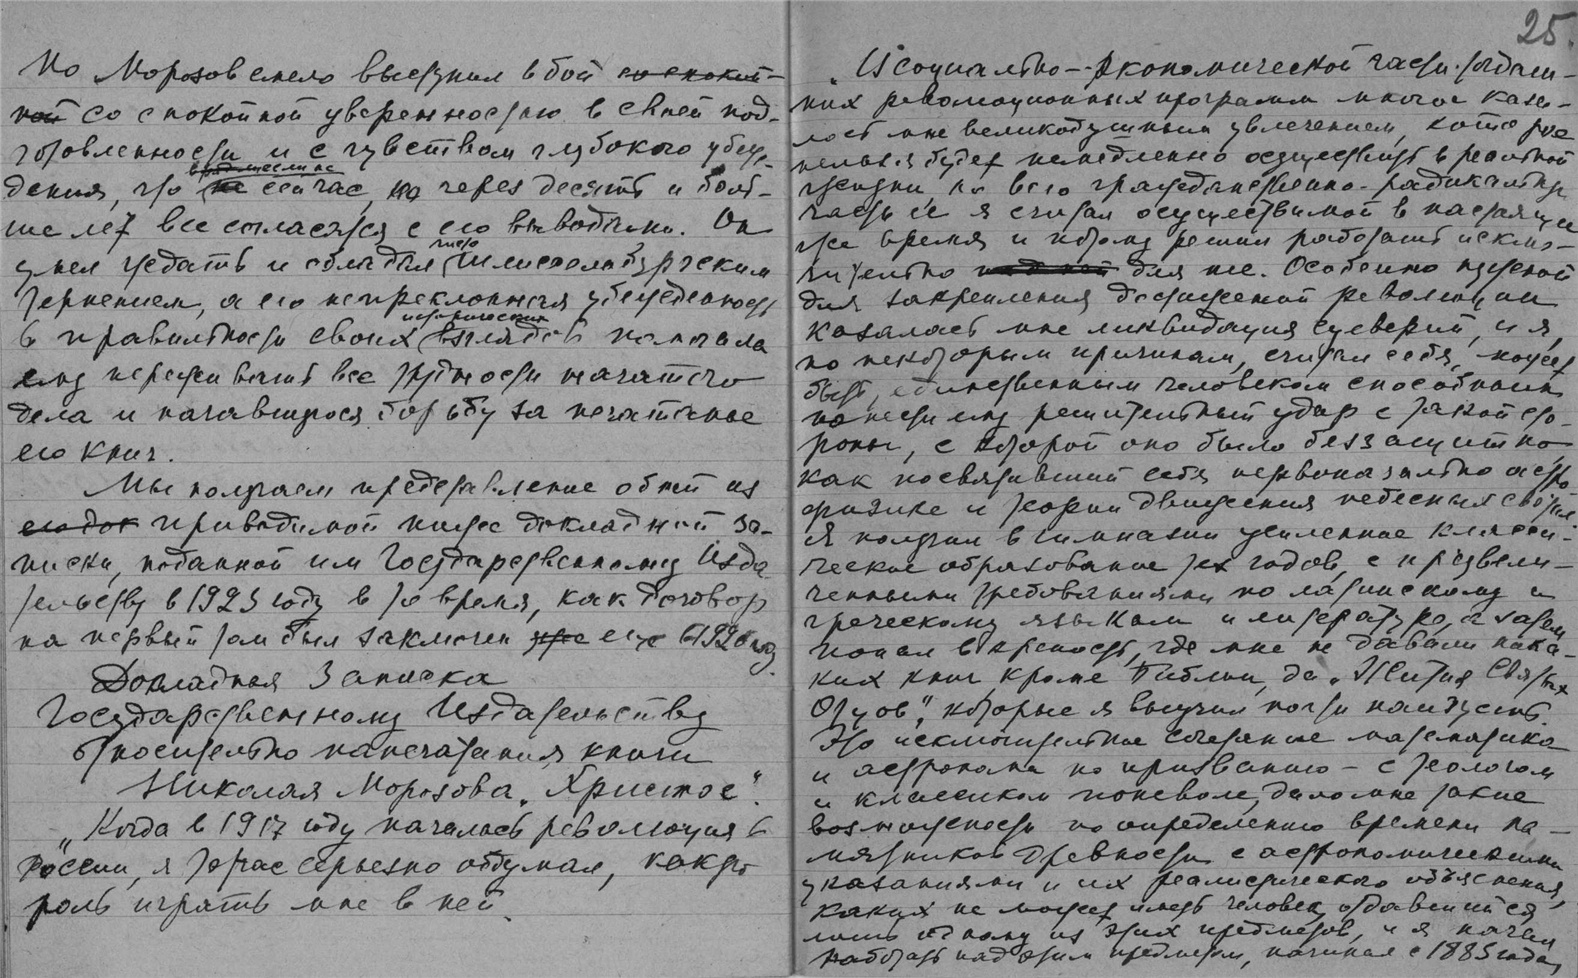 Но Морозов смело выступил в бой со спокой-
ной со спокойной уверенностью в своей под-
готовленности и с чувством глубокого убеж-
дения, что не сейчас, но через десять и боль-
ше лет все согласятся с его выводами. Он
умел ждать и обладал чисто шлиссельбургским
терпением, а его непреклонная убежденность
в правильности своих исторических взглядов помогала
ему переживать все трудности начатого
дела и начавшуюся борьбу за печатание
его книг.
Мы получаем представление об ней из
его док приводимой ниже докладной за-
писки, поданной им Государственному Изда-
тельству в 1923 году в то время, как договор
на первый том был заключен уже еще в 1920 году.
Докладная Записка
Государственному Издательству
относительно напечатания книги
Николая Морозова „Христос“.
„Когда в 1917 году началась революция в
России, я тотчас серьезно обдумал, какую
роль играть мне в ней.
25.
„Из социально-экономической части тогдаш-
них революционных программ многое каза-
лось мне великодушным увлечением, которое
нельзя будет немедленно осуществить в реальной
жизни, но всю гражданственно-радикальную
часть ее я считал осуществимой в настоящее
же время и потому решил работать исклю-
чительно над ней для нее. Особенно нужной
для закрепления достижений революции
казалась мне ликвидация суеверий, и я,
по некоторым причинам, считал себя, может
быть, единственным человеком способным
нанести ему решительный удар с такой сто-
роны, с которой оно было беззащитно,
как посвятивший себя первоначально астро
физике и теории движения небесных светил.
Я получил в гимназии усиленное класси-
ческое образование тех годов, с преувели-
ченными требованиями по латинскому и
греческому языкам и литературе, а затем
попал в крепость, где мне не давали ника-
ких книг кроме Библии, да „Жития Святых
Отцов“, которые я выучил почти наизусть.
Это исключительное сочетание математика
и астронома по призванию – с теологом
и классиком поневоле, дало мне такие
возможности по определению времени па-
мятников древности с астрономическими
указаниями и их реалистического объяснения,
каких не может иметь человек, отдавшийся
лишь одному из этих предметов, и я начал
работать над этим предметом, начиная с 1883 года,